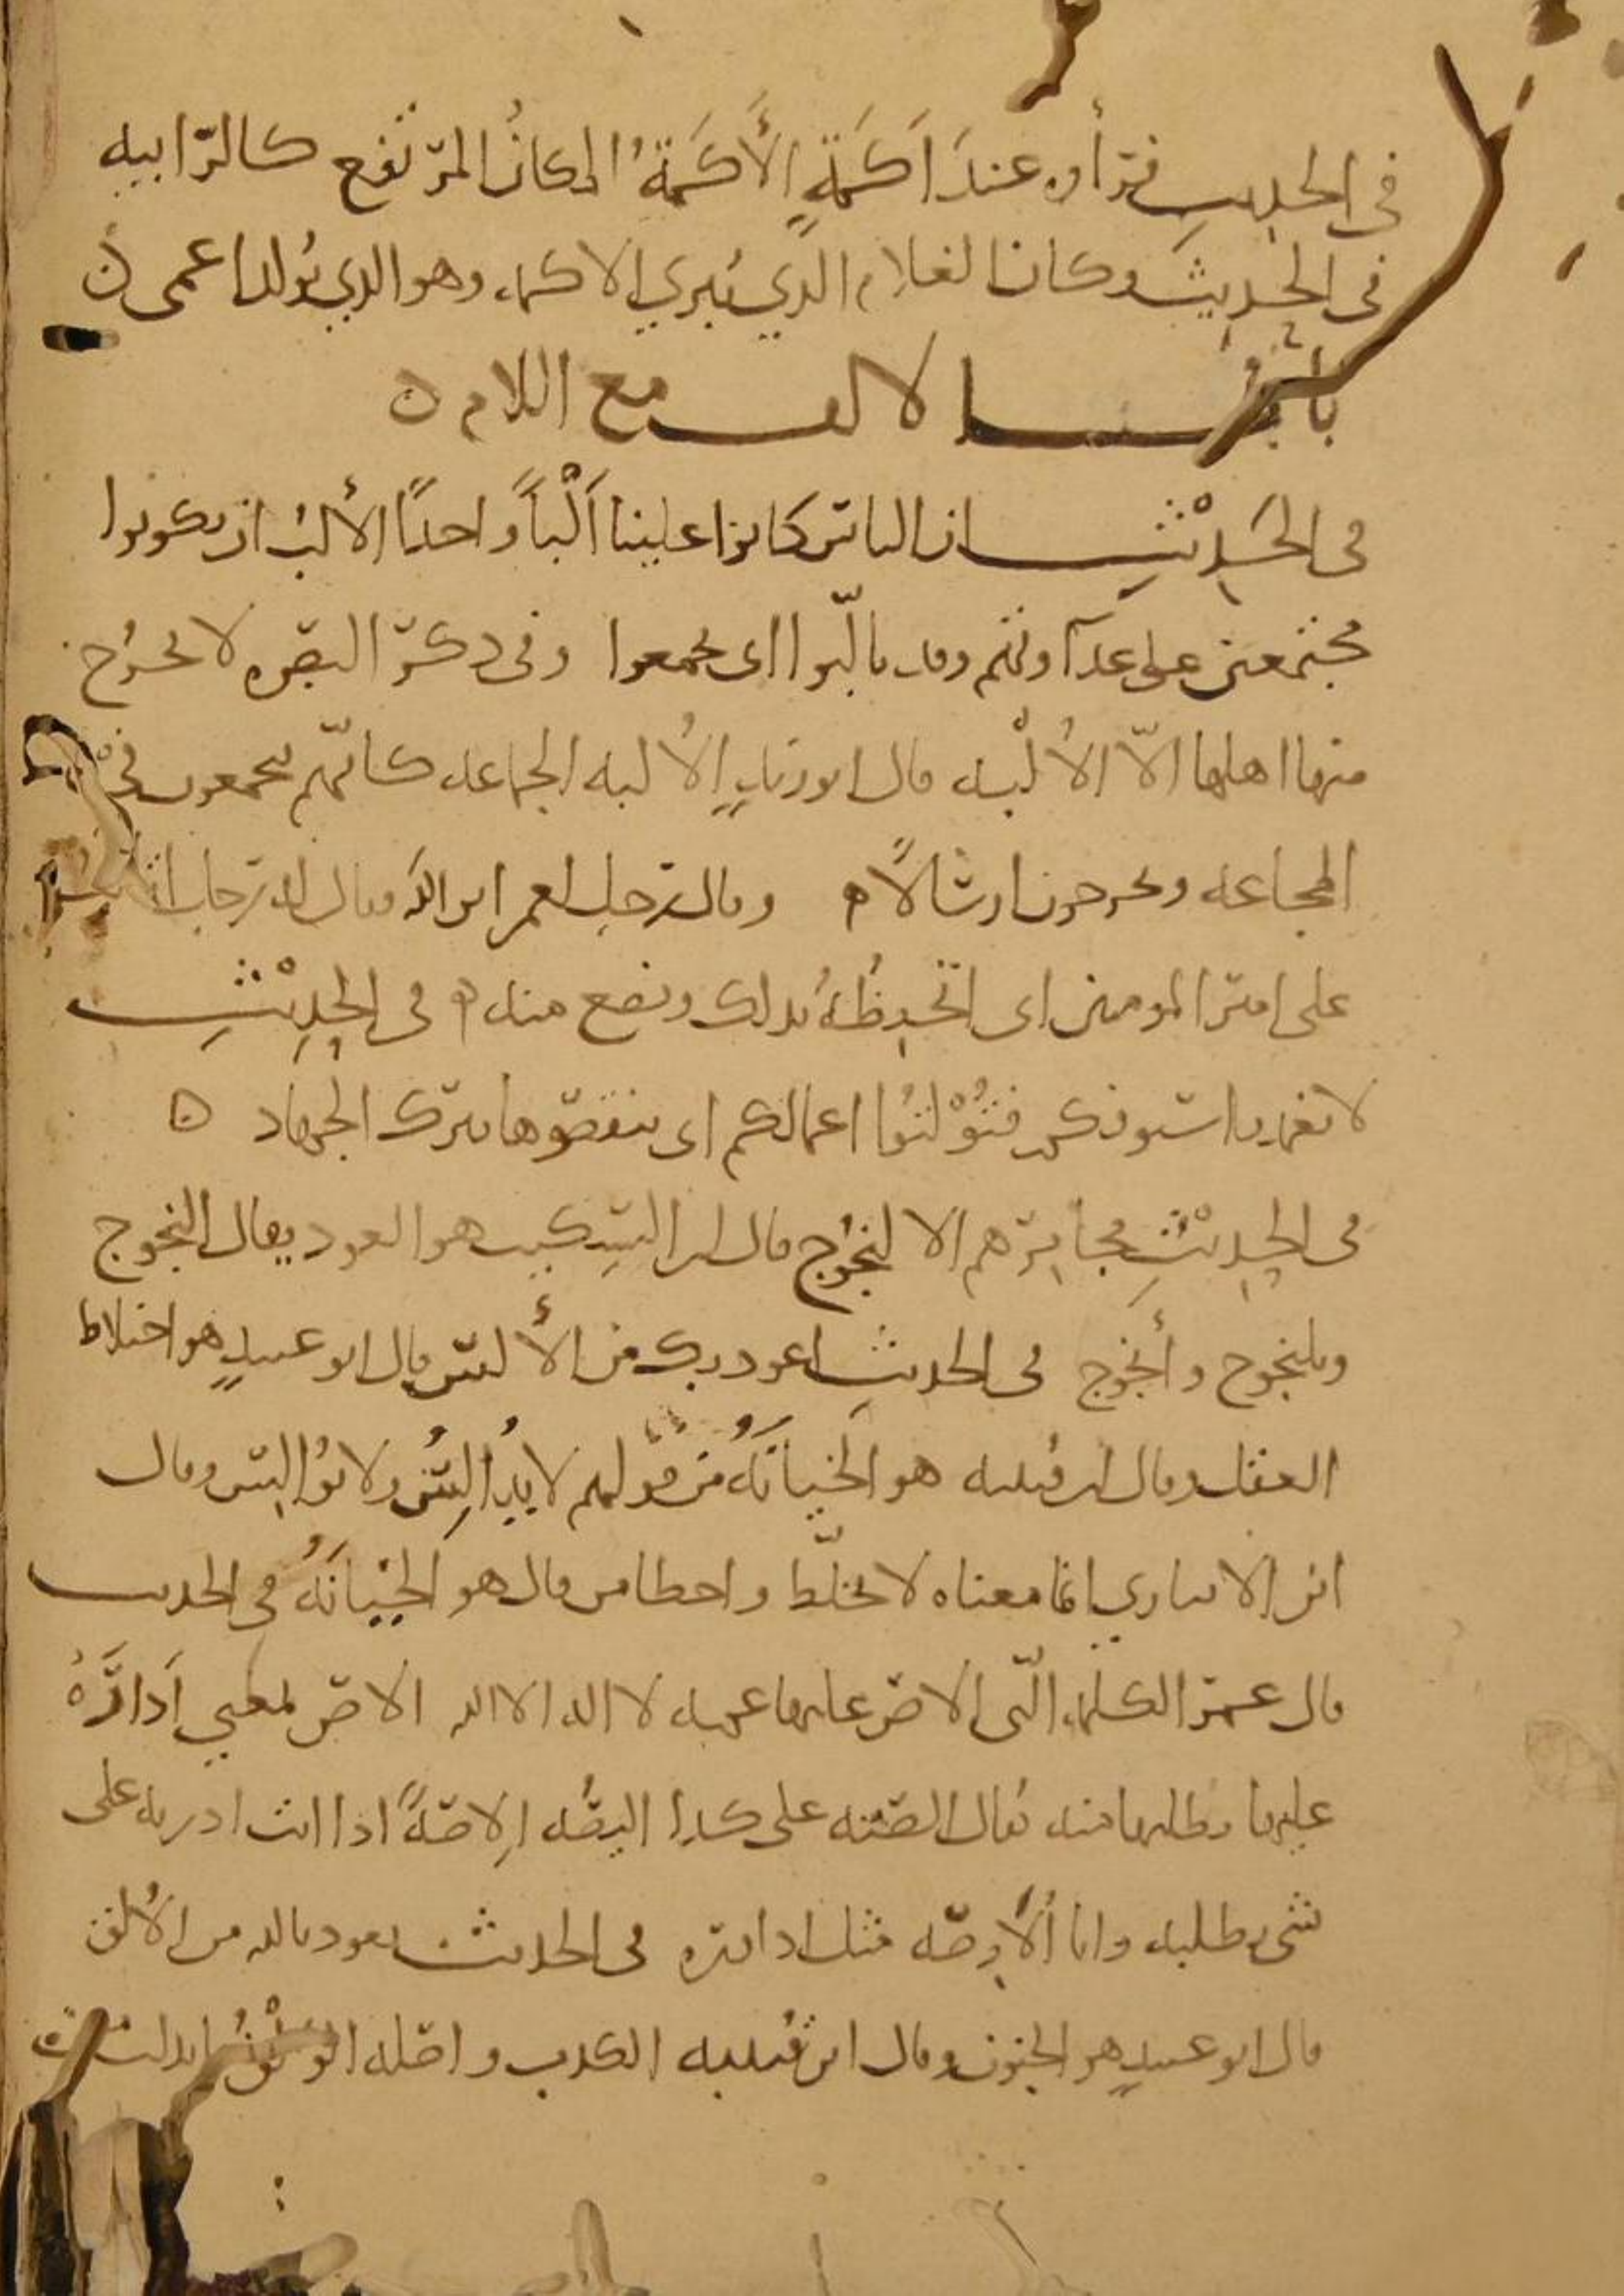 في الحديث فتراوه عند اَكَمَةٍ الأَكَمَةُ المكانُ المرتفع كالرّابيه
في الحديث وكان الغلام الذي يُبري الاكمه وهو الذي يُولد اعمى ن
باب الالف مع اللام ن
في الحَدِيْثِ ان الناس كانوا علينا اَلْباً واحدًا الألبُ ان يكونوا
مجتمعين على عداوتهم وقد تالّبوا اي تجمعوا وفي ذكر البصره لا يخرُج
منها اهلها الاّ الأُلْبه قال ابو زيدٍ الأُلبه الجماعه كانّهم يجمعون في
المجاعه ويخرجون ارسالاً ه وقال رجل لعمر اتق الله فقال له رجل اتالت
على امير المومنين اي اتحيطُهُ بذلك وتضع منه ه في الحدِيْثِ
لا تغمدوا سيوفكم فتُوْلتُوا اعمالكم اي تنقصوها بترك الجهاد ن
في الحدِيْثِ مجامرهم الالنجُوج قال ابن السِكيت هو العود يقال النجُوج
ويلنجوج وأنجُوج في الحديث اعوذ بك من الألس قال ابو عبيدٍ هو اختلاط
العقل وقال ابن قتيبه هو الخيانَةُ من قولهم لا يُدالِسُ ولا يُوالِس وقال
ابن الانباري انما معناه لا يخلّط واخطا من قال هو الخِيَانَةُ في الحديث
قال عمر الكلمه الّتي الاص عليها عمه لا اله الا الله الاص بمعنى اَدَارَهُ
عليها وطلبها منه يقال الصته على كذا اليصُه اِلاصَةً اذا انت ادرته على
شي وطلبه وانا أُلاوصه مثل اداوره في الحديث نعوذ بالله من الألق
قال ابو عبيدٍ هو الجنون وقال ابن قتيبه الكذب واصله الوَلْقُ ابدلت